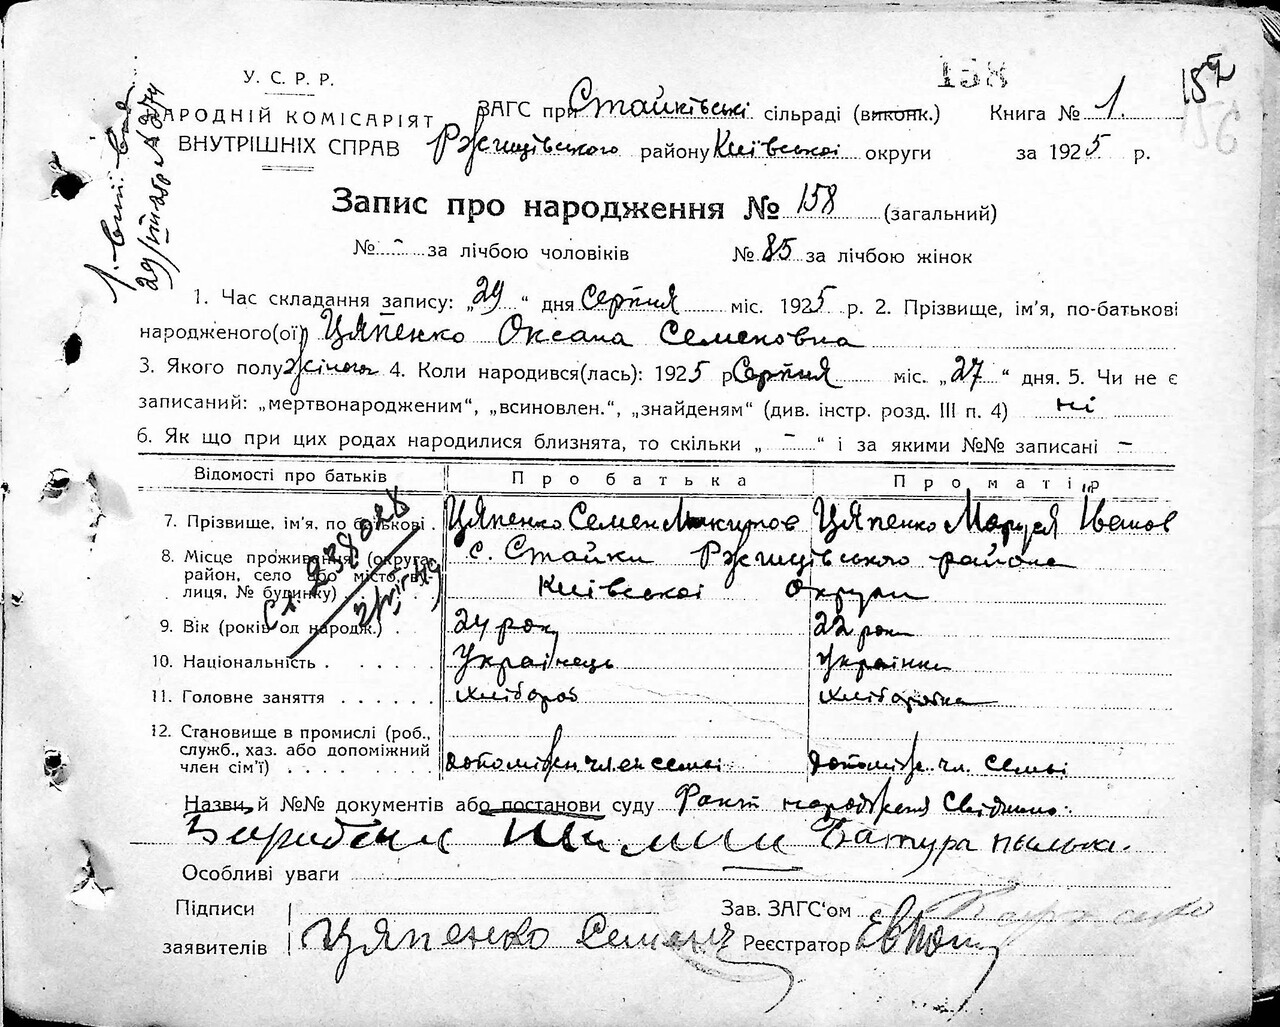 158
У. С. Р. Р.
НАРОДНІЙ КОМІСАРІЯТ
ВНУТРІШНІХ СПРАВ
ЗАГС при Стайківські сільраді (виконк.) Книга № 1.
Ржищівського району Київської округи за 1925 р.
Запис про народження № 158 (загальний)
№ - за лічбою чоловіків № 85 за лічбою жінок
1. Час складання запису: „29“ дня Серпня міс. 1925 р. 2. Прізвище, ім'я, по-батькові
народженого(ої) Цяпенко Оксана Семеновна
3. Якого полу жіного 4. Коли народився(лась): 1925 р Серпня міс. „27“ дня. 5. Чи не є
записаний: „мертвонародженим“, „всиновлен.“, „знайденям“ (див. інстр. розд. III п. 4) ні
6. Як що при цих родах народилися близнята, то скільки „ - “ і за якими №№ записані -
Відомості про батьків Про батька Про матір
7. Прізвище, ім'я, по батькові . Цяпенко Семен Микитов Цяпенко Маруся Іванов
8. Місце проживання (округа, район, село або місто, вулиця, № будинку) с. Стайки Ржищівського района
Київської Округи
9. Вік (років од народж.) . . 24 рок 22 роки
10. Національність . . . . . Українець Українка
11. Головне заняття . . . . . . Хлібороб Хліборобка
12. Становище в промислі (роб.,
служб., хаз. або допоміжний
член сім'ї) . . . . . . . . допоміжн член семї допоміж. чл. семьї
Назви й №№ документів або постанови суду Факт народження Свідчили:
Батура
Особливі уваги
Підписи Зав. ЗАГС'ом
заявителів Цяпенко Семен Реєстратор